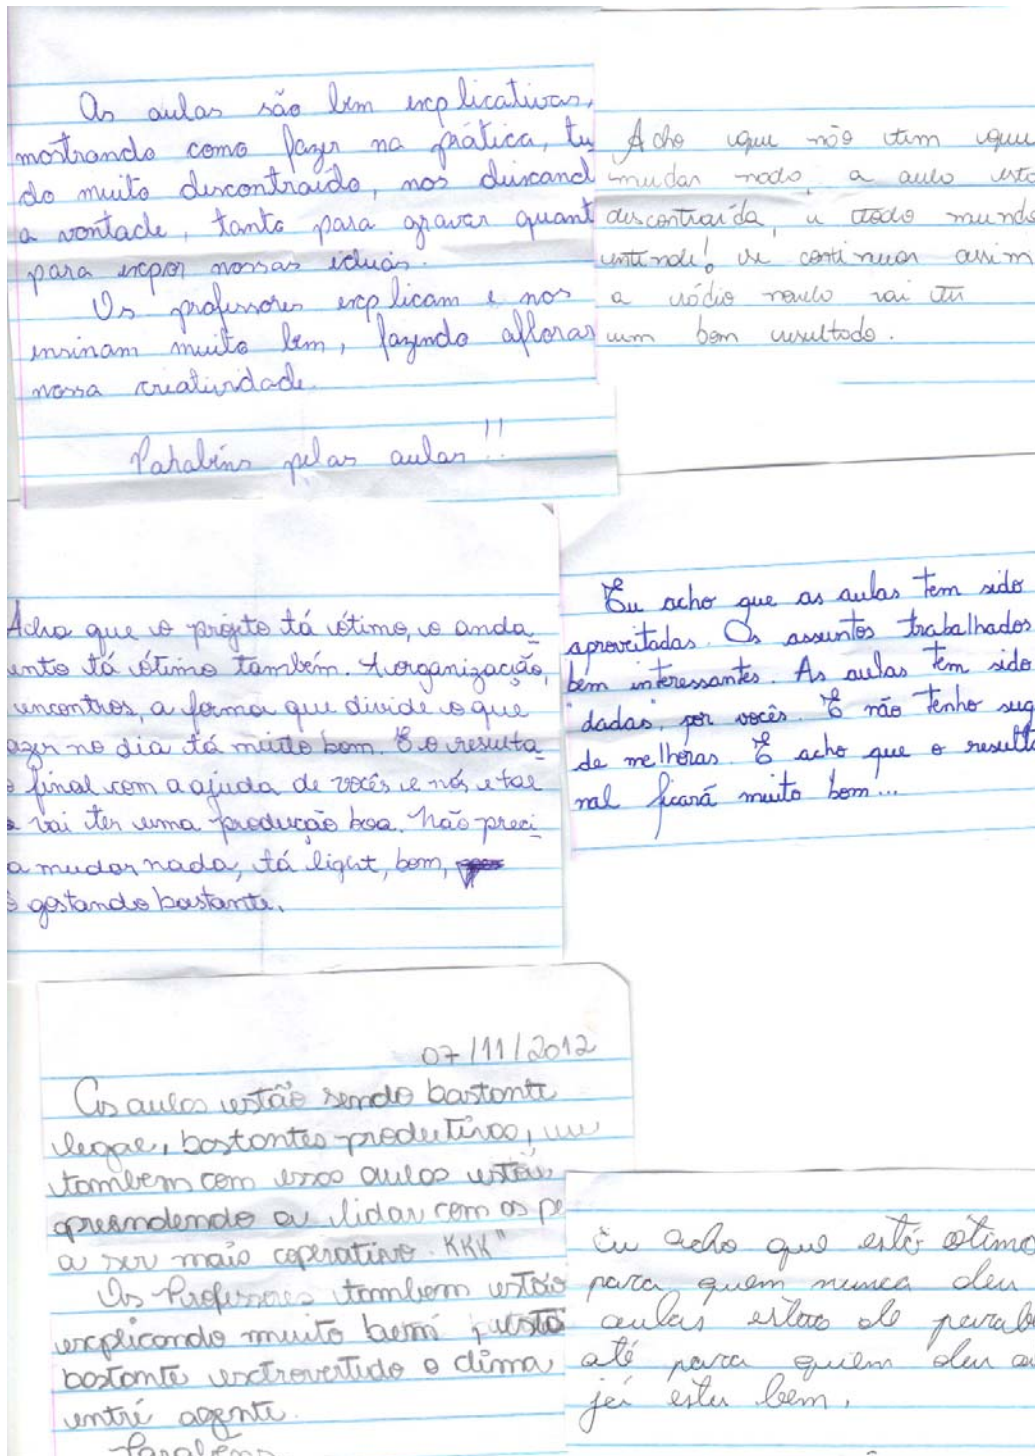 As aulas são bem explicativas,
mostrando como fazer na prática, tu
do muito descontraído, nos deixand
a vontade, tanto para gravar quant
para expor nossas ideias.
Os professores explicam e nos
ensinam muito bem, fazendo aflorar
nossa criatividade.
Parabéns pelas aulas!!
Acho que não tem que
mudar nada, a aula esta
descontraída, e todo mundo
entende! se continuar assim
a rádio novela vai ter
um bom resultado.
Acho que o projeto tá ótimo, o anda
ento tá ótimo também. A organização,
encontros, a forma que divide o que
azer no dia tá muito bom. E o resulta
final com a ajuda de vocês e nós e tal
vai ter uma produção boa. Não preci
a mudar nada, tá light, bom,
gostando bastante.
Eu acho que as aulas tem sido
aproveitadas. Os assuntos trabalhados
bem interessantes. As aulas tem sido
"dadas" por vocês. E não tenho sug
de melhoras. E acho que o result
nal ficará muito bom...
07/11/2012
As aulas estão sendo bastante
legal, bastantes produtivas, eu
tambem com essas aulas estou
apreendendo a lidar com as pe
a ser mais coperativo. KKK"
Os Professores tambem estão
explicando muito bem
bastante extrovertido o clima
entre agente.
Parabéns
Eu acho que está ótimo
para quem nunca deu
aulas estão de parab
até para quem deu au
já esta bem.